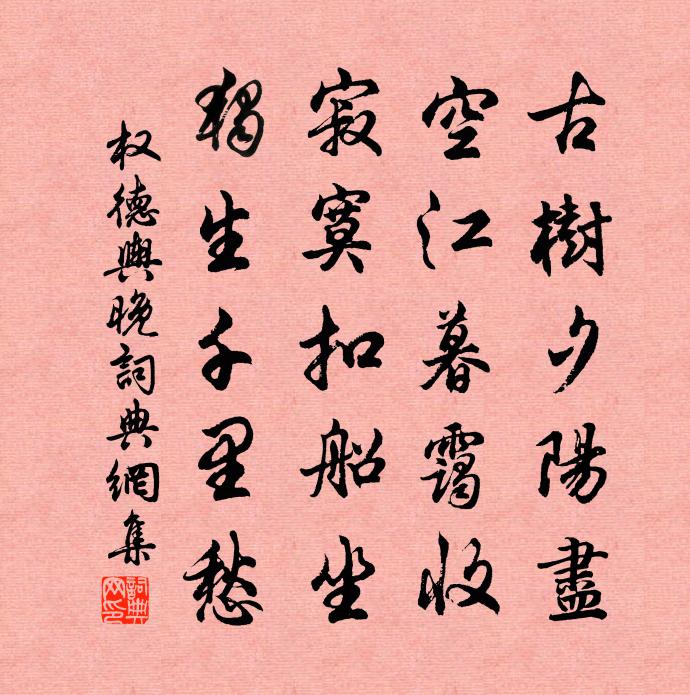 古樹夕陽盡
空江暮靄收
寂寞扣船坐
獨生千里愁
权德輿晚詞典網集
詞典網印